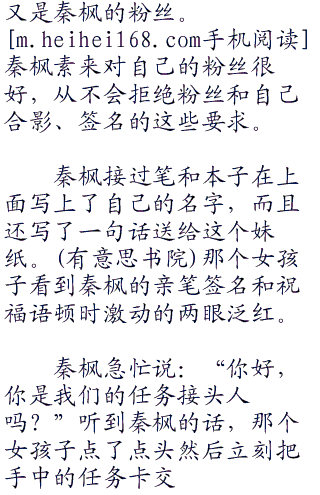 又是秦枫的粉丝。
[m.heihei168.com手机阅读]
秦枫素来对自己的粉丝很
好，从不会拒绝粉丝和自己
合影、签名的这些要求。
秦枫接过笔和本子在上
面写上了自己的名字，而且
还写了一句话送给这个妹
纸。(有意思书院)那个女孩
子看到秦枫的亲笔签名和祝
福语顿时激动的两眼泛红。
秦枫急忙说：“你好，
你是我们的任务接头人
吗？”听到秦枫的话，那个
女孩子点了点头然后立刻把
手中的任务卡交